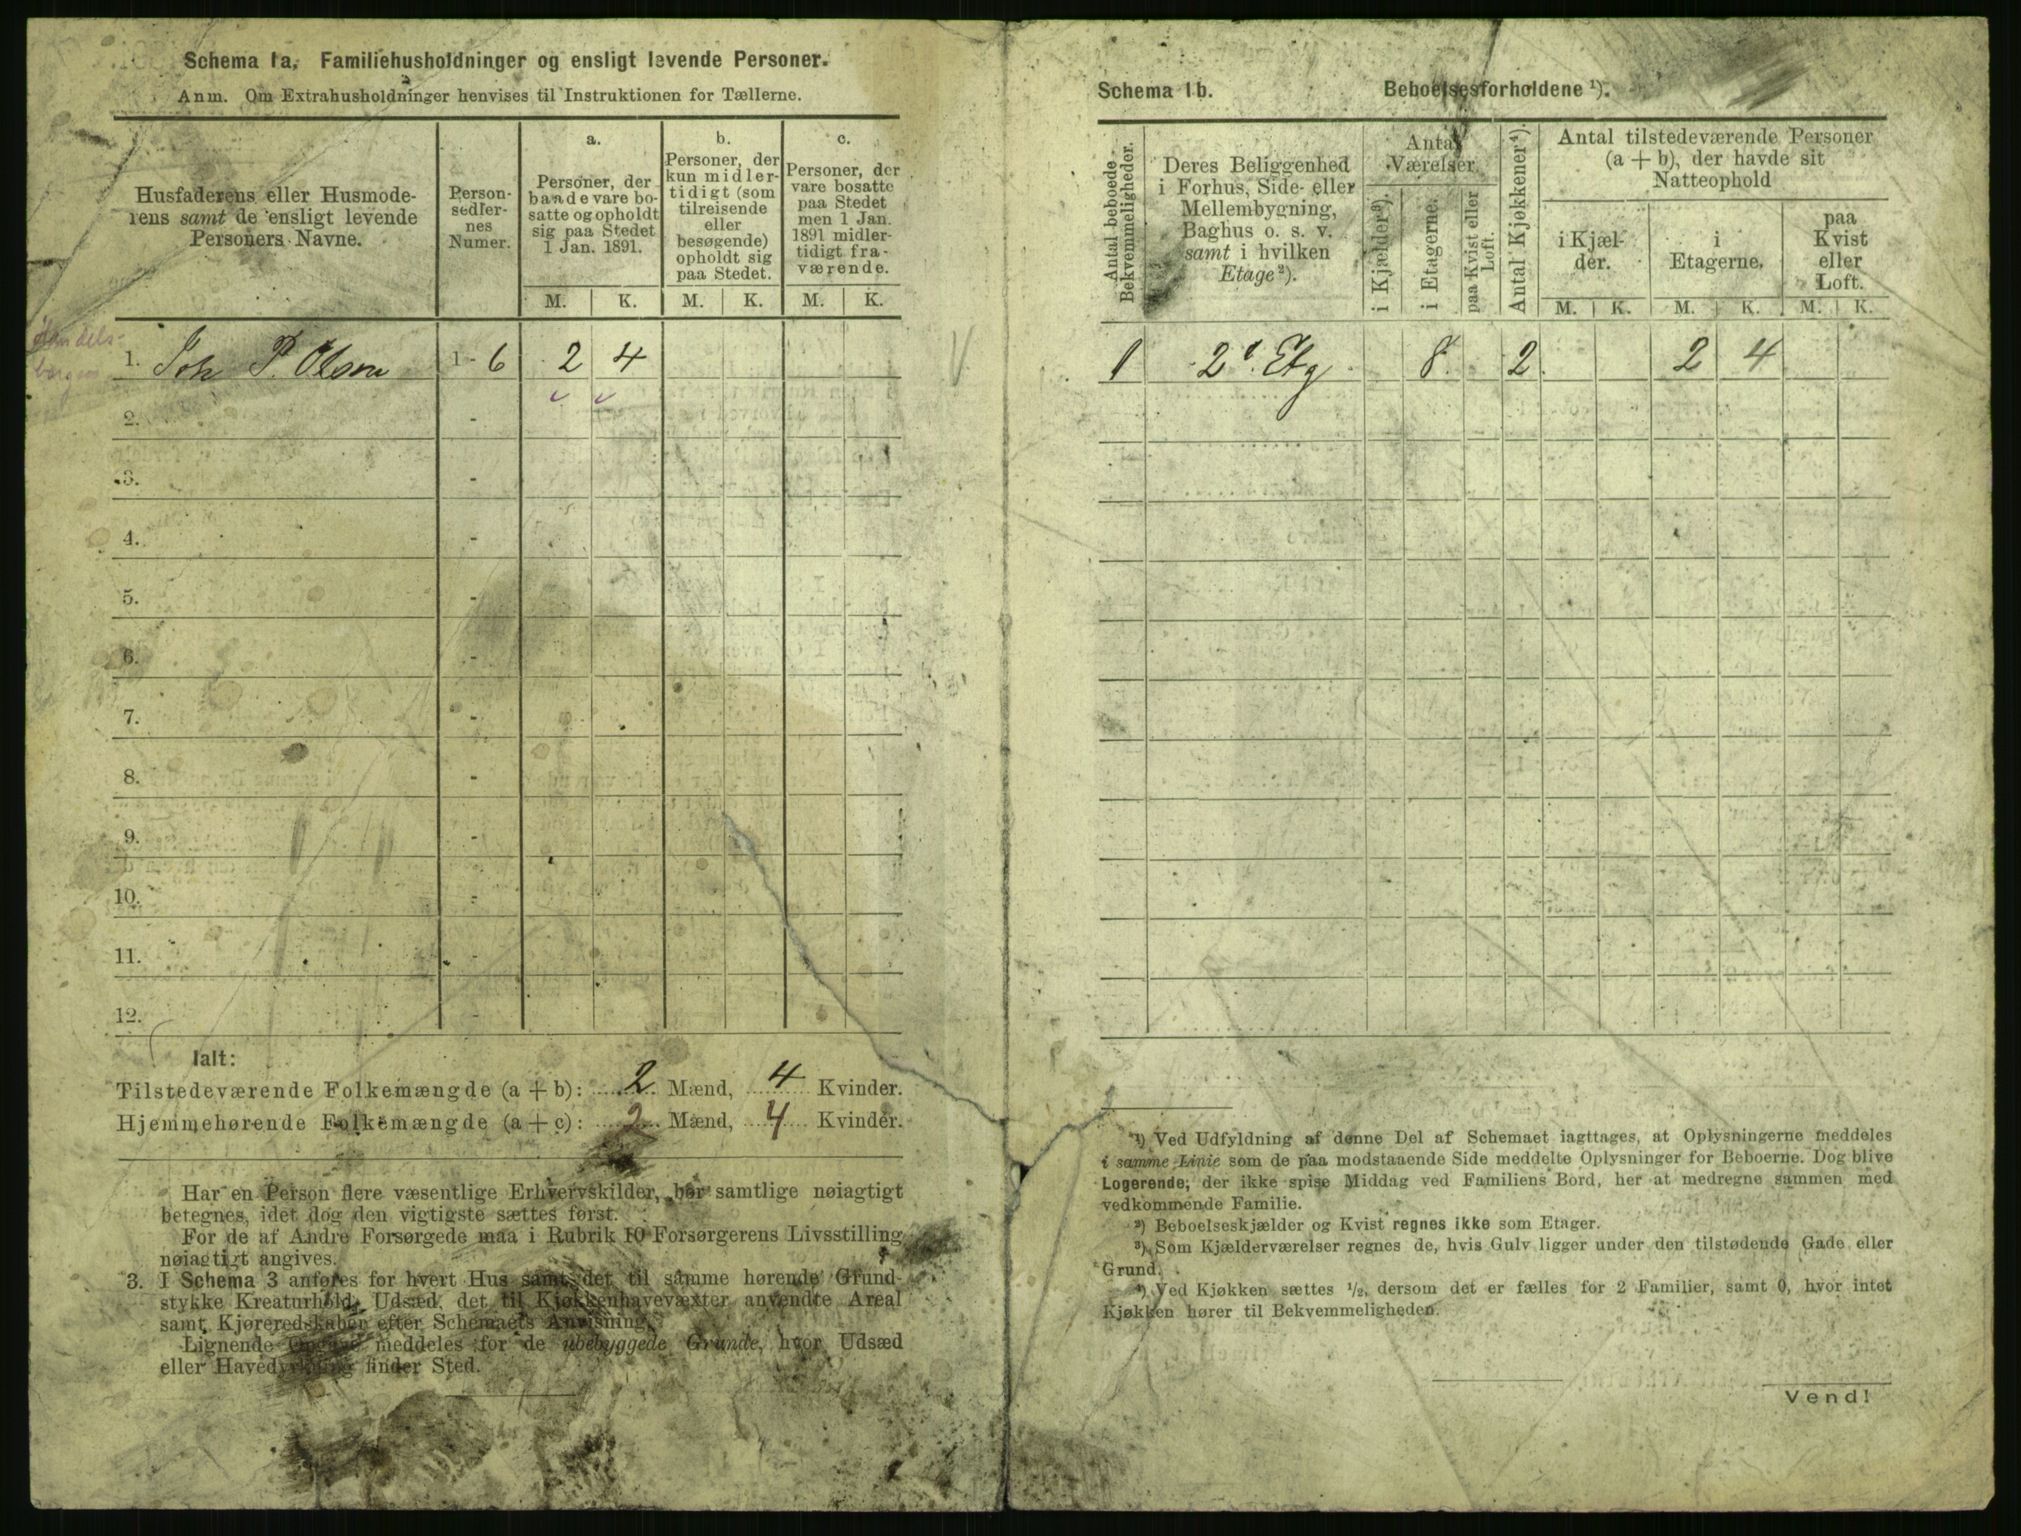 Schema 1a. Familiehusholdninger og ensligt levende Personer.
Anm. Om Extrahusholdninger henvises til Instruktionen for Tællerne.
Husfaderens eller Husmode-
rens samt de ensligt levende
Personers Navne.
Person-
sedler-
nes
Numer.
a.
Personer, der
baade vare bo-
satte og opholdt
sig paa Stedet
1 Jan. 1891.
M. K.
b.
Personer, der
kun midler-
tidigt (som
tilreisende
eller
besøgende)
opholdt sig
paa Stedet.
M. K.
c.
Personer, der
vare bosatte
paa Stedet
men 1 Jan.
1891 midler-
tidigt fra-
værende.
M. K.
Handels-
borger
1. Joh P. Olsen 1 - 6 2 4
2. -
3. -
4. -
5. -
6. -
7. -
8. -
9. -
10. -
11. -
12. -
Ialt:
Tilstedeværende Folkemængde (a + b): 2 Mænd, 4 Kvinder.
Hjemmehørende Folkemængde (a + c): 2 Mænd, 4 Kvinder.
Har en Person flere væsentlige Erhvervskilder, bør samtlige nøiagtigt
betegnes, idet dog den vigtigste sættes først.
For de af Andre Forsørgede maa i Rubrik 10 Forsørgerens Livsstilling
nøiagtigt angives.
3. I Schema 3 anføres for hvert Hus samt det til samme hørende Grund-
stykke Kreaturhold, Udsæd, det til Kjøkkenhavevæxter anvendte Areal
samt Kjøreredskaber efter Schemaets Anvisning.
Lignende Opgave meddeles for de ubebyggede Grunde, hvor Udsæd
eller Havedyrkning finder Sted.
Schema 1b. Beboelsesforholdene ¹).
Antal beboede
Bekvemmeligheder.
Deres Beliggenhed
i Forhus, Side- eller
Mellembygning,
Baghus o. s. v.
samt i hvilken
Etage ²).
Antal
Værelser.
i Kjælder ³).
i Etagerne.
paa Kvist eller
Loft.
Antal Kjøkkener ⁴).
Antal tilstedeværende Personer
(a + b), der havde sit
Natteophold
i Kjæl-
der.
M. K.
i
Etagerne.
M. K.
paa
Kvist
eller
Loft.
M. K.
1 2d. Etg 8. 2 2 4
¹) Ved Udfyldning af denne Del af Schemaet iagttages, at Oplysningerne meddeles
i samme Linie som de paa modstaaende Side meddelte Oplysninger for Beboerne. Dog blive
Logerende, der ikke spise Middag ved Familiens Bord, her at medregne sammen med
vedkommende Familie.
²) Beboelseskjælder og Kvist regnes ikke som Etager.
³) Som Kjælderværelser regnes de, hvis Gulv ligger under den tilstødende Gade eller
Grund.
⁴) Ved Kjøkken sættes ¹/₂, dersom det er fælles for 2 Familier, samt 0, hvor intet
Kjøkken hører til Bekvemmeligheden.
Vend!